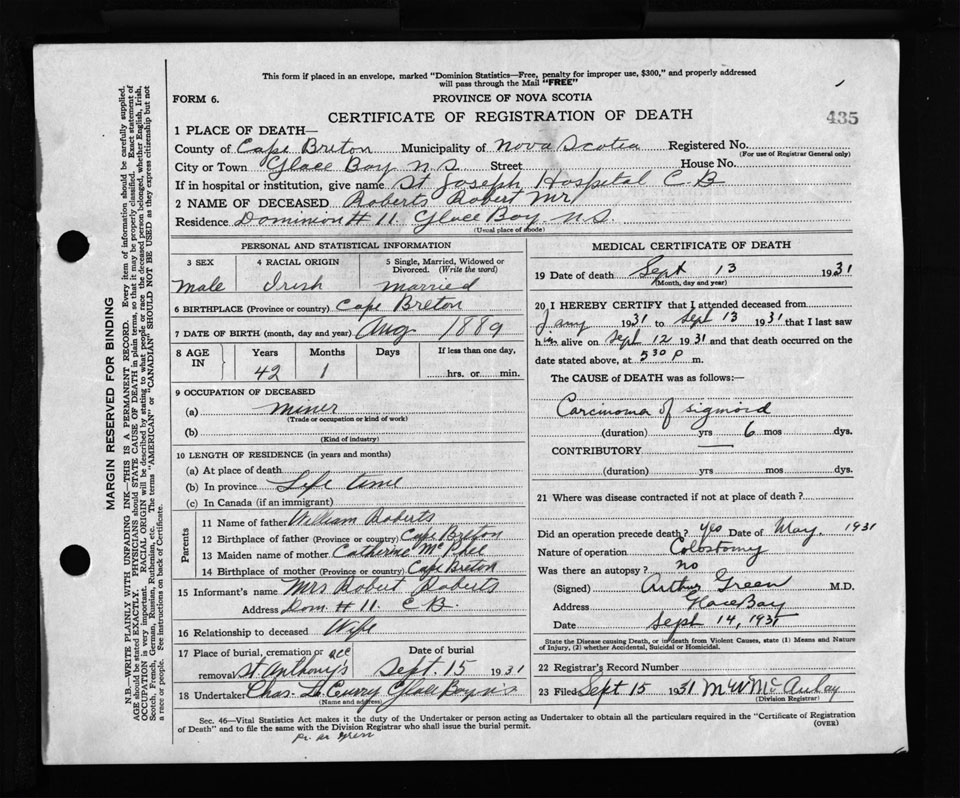 This form if placed in an envelope, marked "Dominion Statistics—Free, penalty for improper use, $300," and properly addressed
will pass through the Mail "FREE"
FORM 6.
PROVINCE OF NOVA SCOTIA
CERTIFICATE OF REGISTRATION OF DEATH
435
1 PLACE OF DEATH—
County of Cape Breton Municipality of Nova Scotia Registered No.
(For use of Registrar General only)
City or Town Glace Bay N.S. Street House No.
If in hospital or institution, give name St Joseph Hospital C B
2 NAME OF DECEASED Roberts Robert Mr
Residence Dominion # 11. Glace Bay N.S.
(Usual place of abode)
PERSONAL AND STATISTICAL INFORMATION
3 SEX 4 RACIAL ORIGIN 5 Single, Married, Widowed or
Divorced. (Write the word)
Male Irish Married
6 BIRTHPLACE (Province or country) Cape Breton
7 DATE OF BIRTH (month, day and year) Aug 1889
8 AGE IN Years Months Days If less than one day,
42 1 hrs. or min.
9 OCCUPATION OF DECEASED
(a) Miner
(Trade or occupation or kind of work)
(b)
(Kind of industry)
10 LENGTH OF RESIDENCE (in years and months)
(a) At place of death
(b) In province Life time
(c) In Canada (if an immigrant)
Parents
11 Name of father William Roberts
12 Birthplace of father (Province or country) Cape Breton
13 Maiden name of mother Catherine McPhee
14 Birthplace of mother (Province or country) Cape Breton
15 Informant's name Mrs Robert Roberts
Address Dom. # 11. C.B.
16 Relationship to deceased Wife
17 Place of burial, cremation or removal St Anthony's
Date of burial Sept. 15 1931
18 Undertaker Chas. Curry Glace Bay N S
(Name and address)
MEDICAL CERTIFICATE OF DEATH
19 Date of death Sept 13 1931
(Month, day and year)
20 I HEREBY CERTIFY that I attended deceased from
Jany 1931 to Sept 13 1931 that I last saw
him alive on Sept 12 1931 and that death occurred on the
date stated above, at 5 30 P m.
The CAUSE of DEATH was as follows:—
Carcinoma of sigmoid
(duration) yrs 6 mos dys.
CONTRIBUTORY
(duration) yrs mos dys.
21 Where was disease contracted if not at place of death?
Did an operation precede death? Yes Date of May, 1931
Nature of operation Colostomy
Was there an autopsy? No
(Signed) Arthur Green M.D.
Address Glace Bay
Date Sept 14, 1931
State the Disease causing Death, or in death from Violent Causes, state (1) Means and Nature
of Injury, (2) whether Accidental, Suicidal or Homicidal.
22 Registrar's Record Number
23 Filed Sept 15 1931 M W McAulay
(Division Registrar)
Sec. 46—Vital Statistics Act makes it the duty of the Undertaker or person acting as Undertaker to obtain all the particulars required in the "Certificate of Registration
of Death" and to file the same with the Division Registrar who shall issue the burial permit.
(OVER)
MARGIN RESERVED FOR BINDING
N.B.—WRITE PLAINLY WITH UNFADING INK—THIS IS A PERMANENT RECORD. Every item of information should be carefully supplied.
AGE should be stated EXACTLY. PHYSICIANS should STATE CAUSE OF DEATH in plain terms, so that it may be properly classified. Exact statement of
OCCUPATION is very important. RACIAL ORIGIN will be described by stating to what people or race the deceased person belonged, whether English, Irish,
Scotch, French, German, Russian, Ruthenian, etc. The terms "AMERICAN" or "CANADIAN" SHOULD NOT BE USED as they express citizenship but not
a race or people. See instructions on back of Certificate.